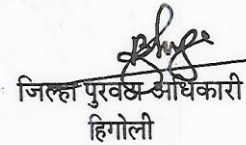 जिल्हा पुरवठा अधिकारी
हिंगोली